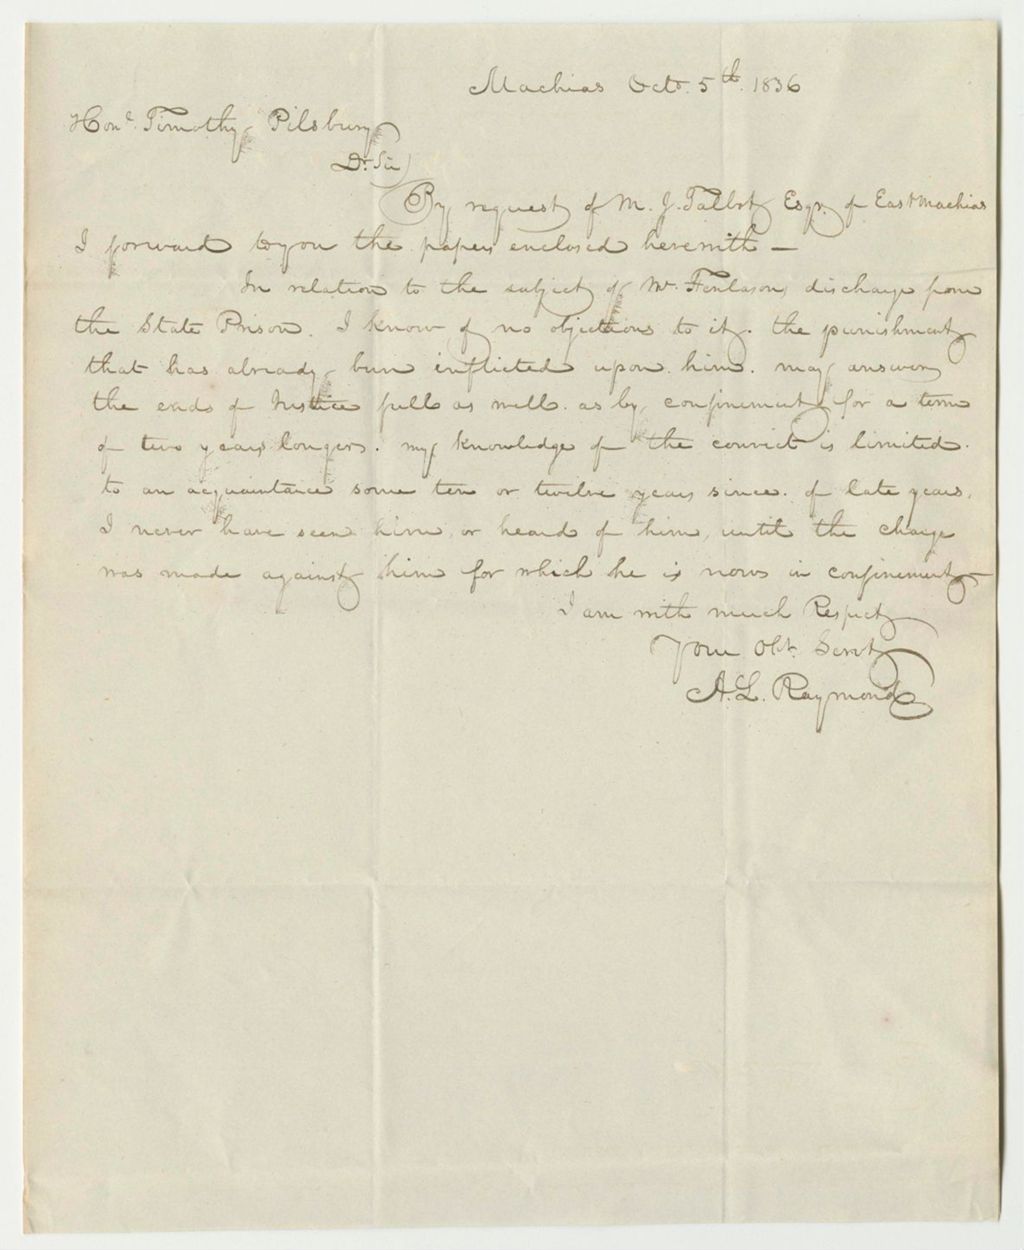 Machias Octr. 5th. 1836
Hone. Timothy Pilsbury
Dr. Sir
By request of M. J. Talbot Esqr. of East Machias
I forward to you the papers enclosed herewith —
In relation to the subject of Mr. Fenlasons discharge from
the State Prison. I know of no objections to it. the punishment
that has already been inflicted upon him. may answer
the ends of Justice full as well. as by confinement for a term
of two years longer. my knowledge of the convict is limited.
to an acquaintance some ten or twelve years since. of late years.
I never have seen him, or heard of him, until the charge
was made against him for which he is now in confinement —
I am with much Respect
Your Obt. Servt
A. L. Raymond